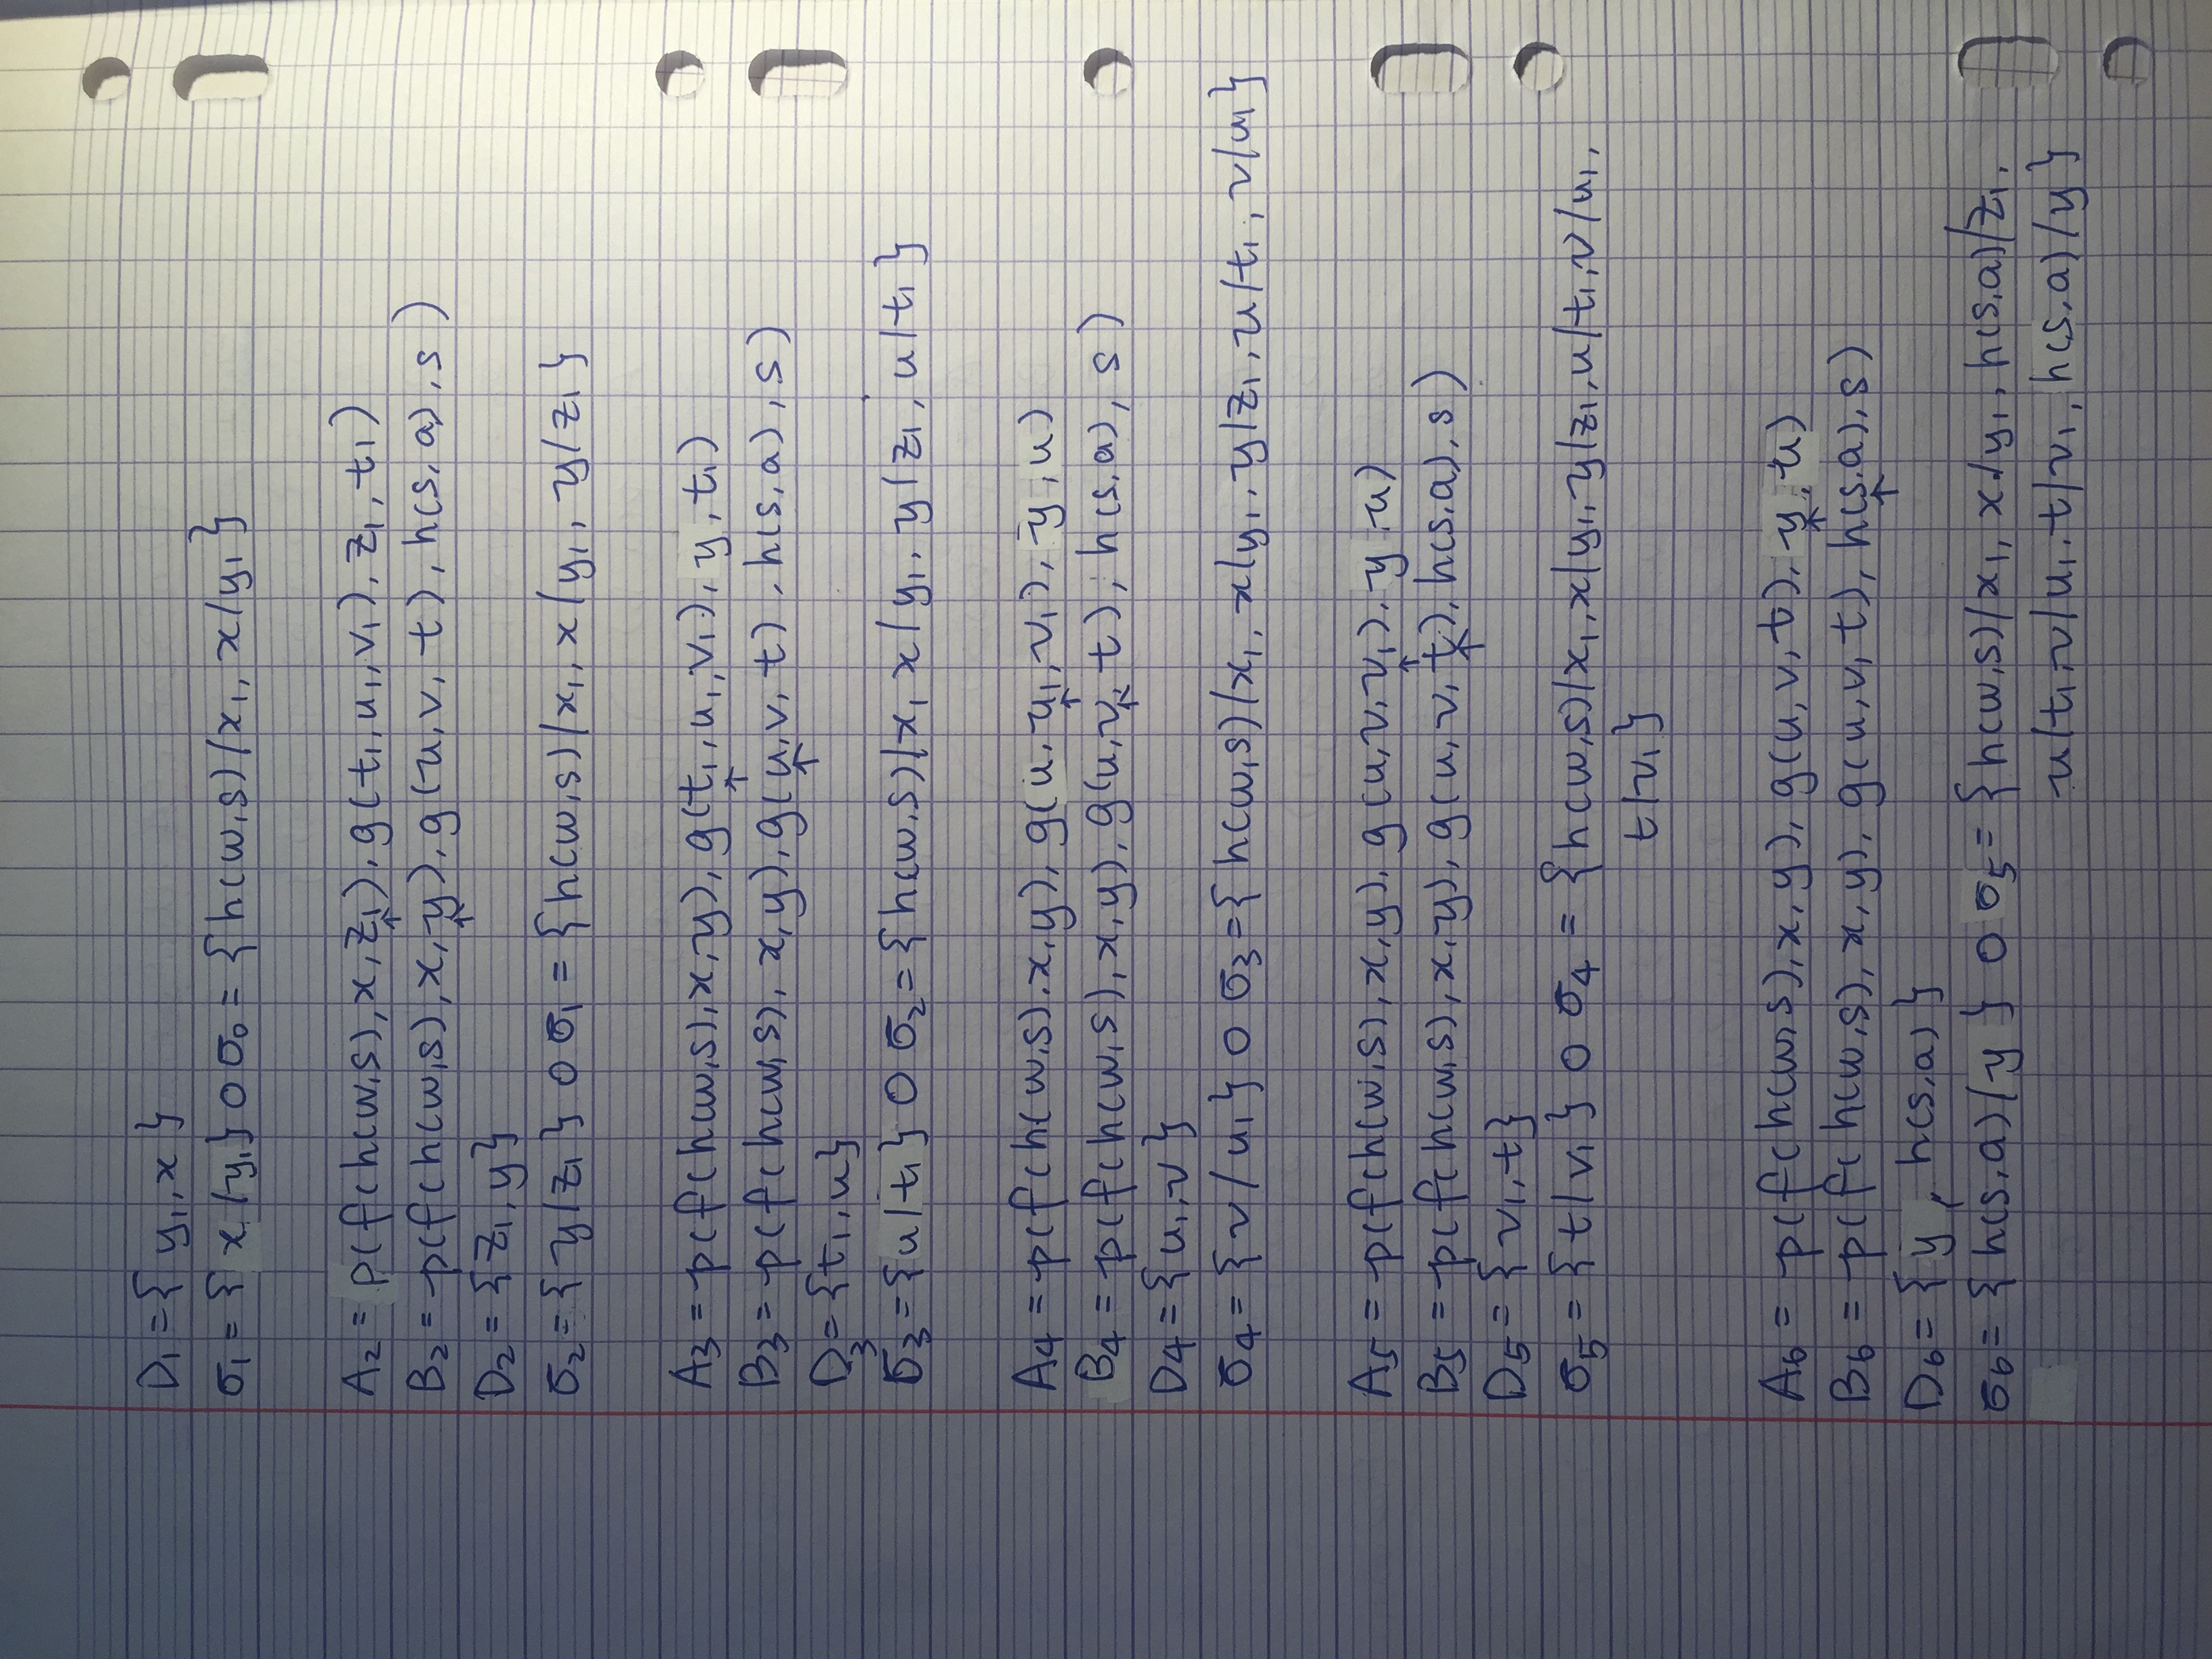 D₁ = { y₁, x }
σ₁ = { x/y₁} o σ₀ = {h(w,s)/x₁, x/y₁}
A₂ = p(f(h(w,s),x,z₁), g(t₁,u₁,v₁), z₁, t₁)
↑
B₂ = p(f(h(w,s),x,y), g(u,v,t), h(s,a), s )
↑
D₂ = {z₁, y}
σ₂ = { y/z₁ } o σ₁ = {h(w,s)/x₁, x/y₁, y/z₁ }
A₃ = p(f(h(w,s),x,y), g(t₁,u₁,v₁), y, t₁)
↑
B₃ = p(f(h(w,s), x,y), g(u,v,t), h(s,a), s)
↑
D₃ = {t₁, u}
σ₃ = {u/t₁} o σ₂ = {h(w,s)/x₁ x/y₁, y/z₁, u/t₁ }
A₄ = p(f(h(w,s),x,y), g(u,u₁,v₁), y, u)
↑
B₄ = p(f(h(w,s),x,y), g(u,v,t), h(s,a), s )
↑
D₄ = {u₁, v }
σ₄ = {v/u₁} o σ₃ = { h(w,s)/x₁, x/y₁, y/z₁, u/t₁, v/u₁}
A₅ = p(f(h(w,s),x,y), g(u,v,v₁), y,u)
↑
B₅ = p(f(h(w,s),x,y), g(u,v,t), h(s,a), s )
↑
D₅ = { v₁, t}
σ₅ = {t/v₁ } o σ₄ = {h(w,s)/x₁, x/y₁, y/z₁, u/t₁, v/u₁,
t/v₁ }
A₆ = p(f(h(w,s),x,y), g(u,v,t), y, u)
↑
B₆ = p(f(h(w,s),x,y), g(u,v,t), h(s,a), s)
↑
D₆ = { y , h(s,a) }
σ₆ = { h(s,a)/y } o σ₅ = {h(w,s)/x₁, x/y₁, h(s,a)/z₁,
u/t₁, v/u₁, t/v₁, h(s,a)/y }